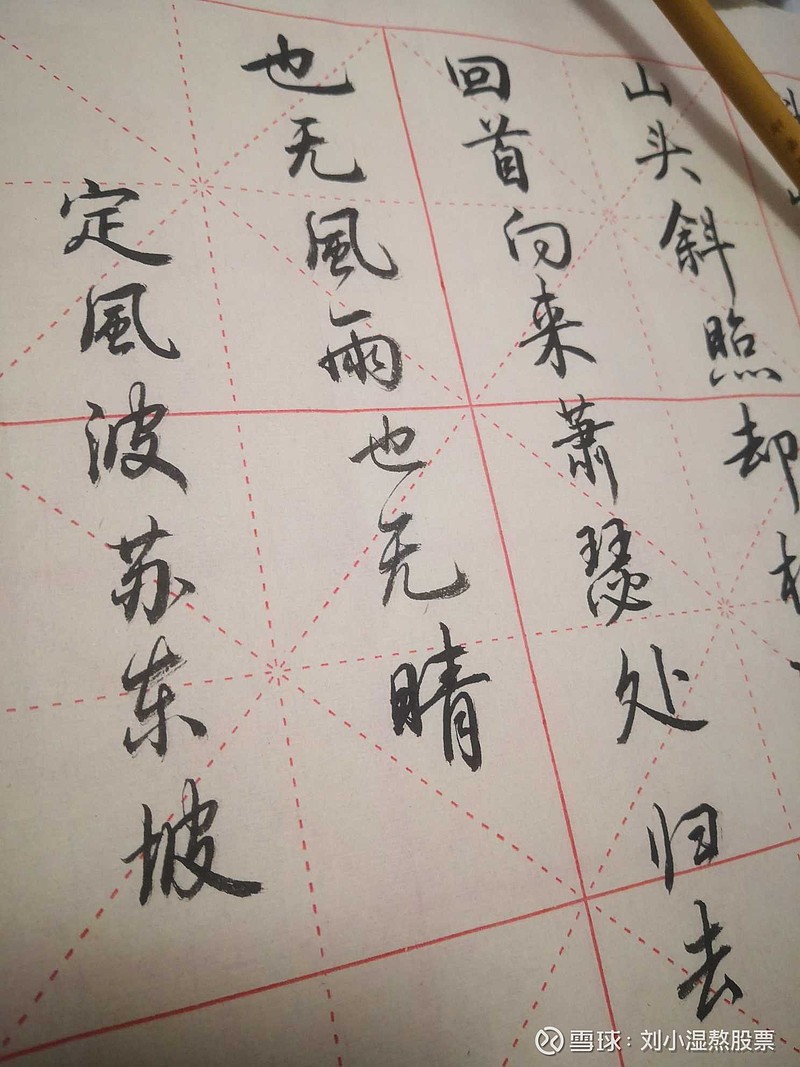 山头斜照却
回首向来萧瑟处归去
也无風雨也无晴
定風波苏东坡
雪球：刘小湿熬股票